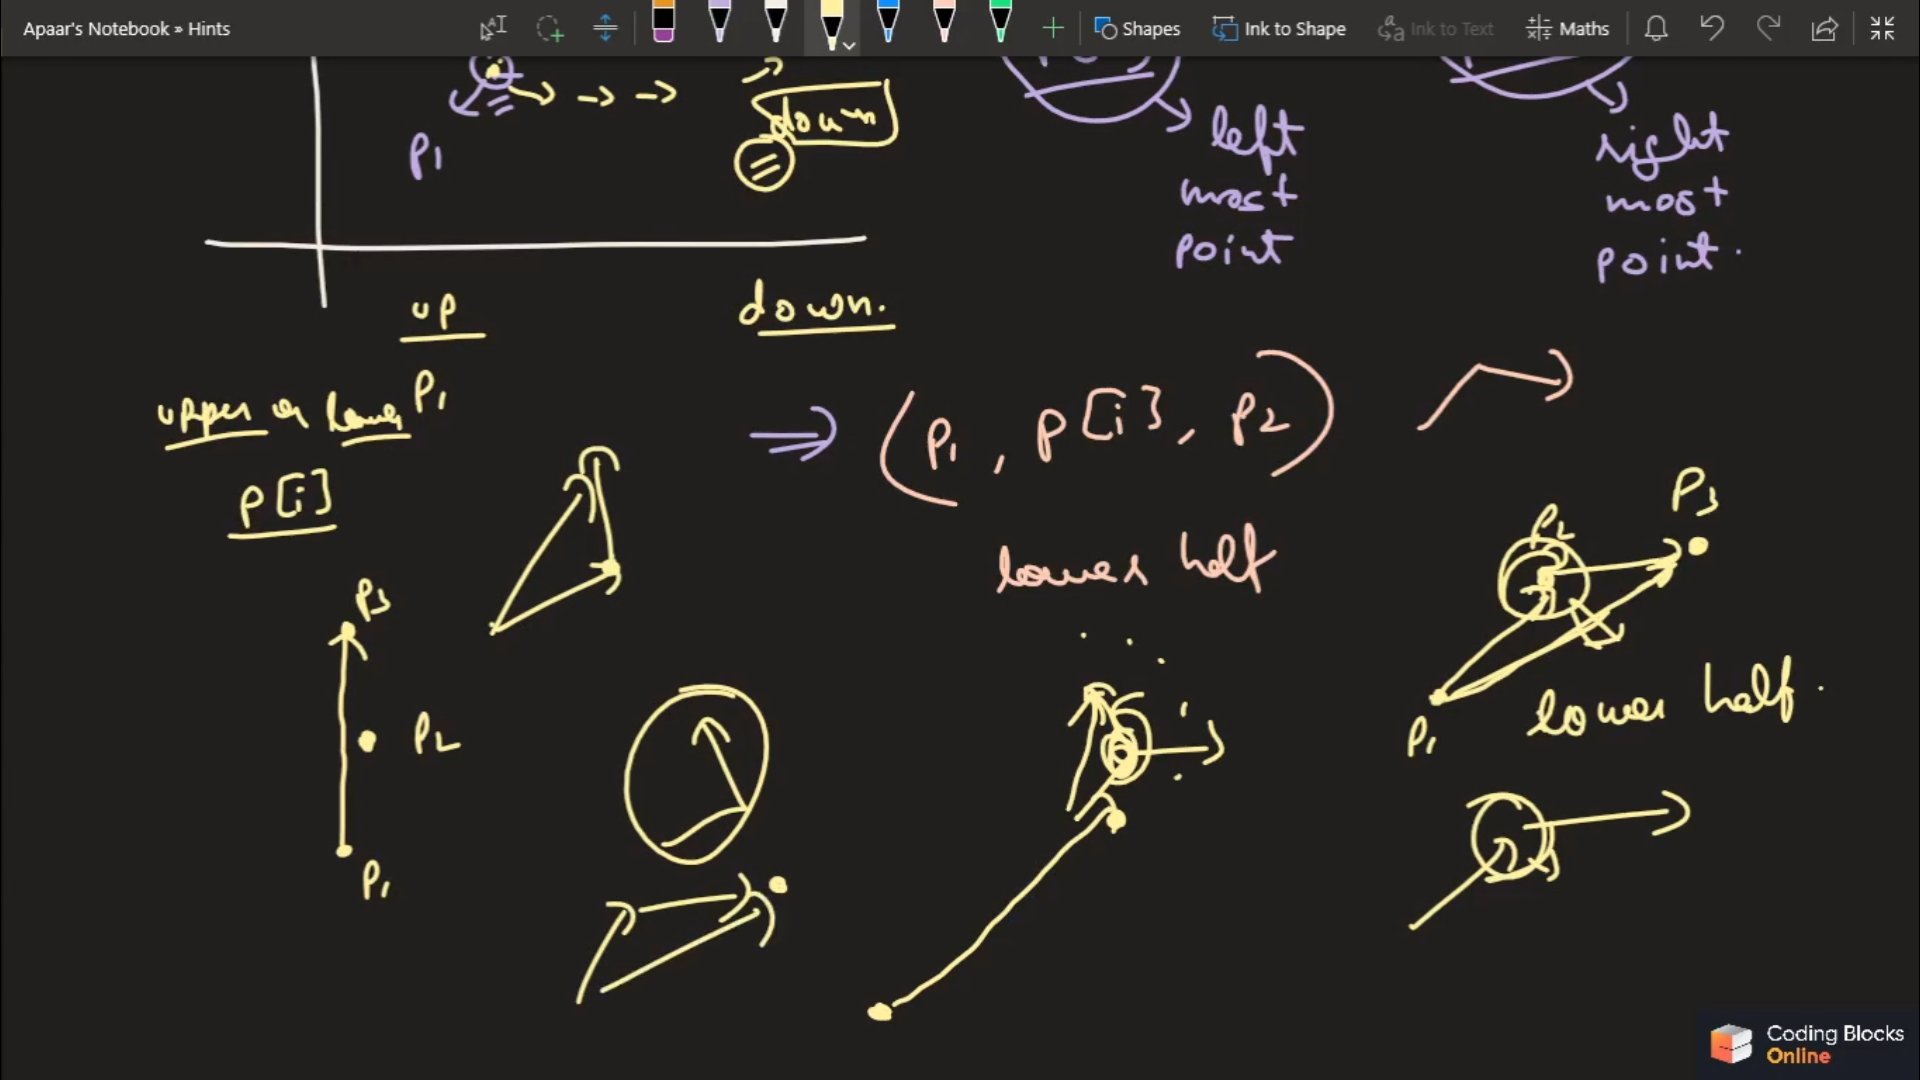 Apaar's Notebook » Hints
Shapes
Ink to Shape
Ink to Text
Maths
P1
down
left
most
point
right
most
point.
up
down.
P1
upper or lower
P[i]
(P1, P[i], P2)
lower half
P3
P2
P1
P2
P3
P1
lower half.
Coding Blocks
Online